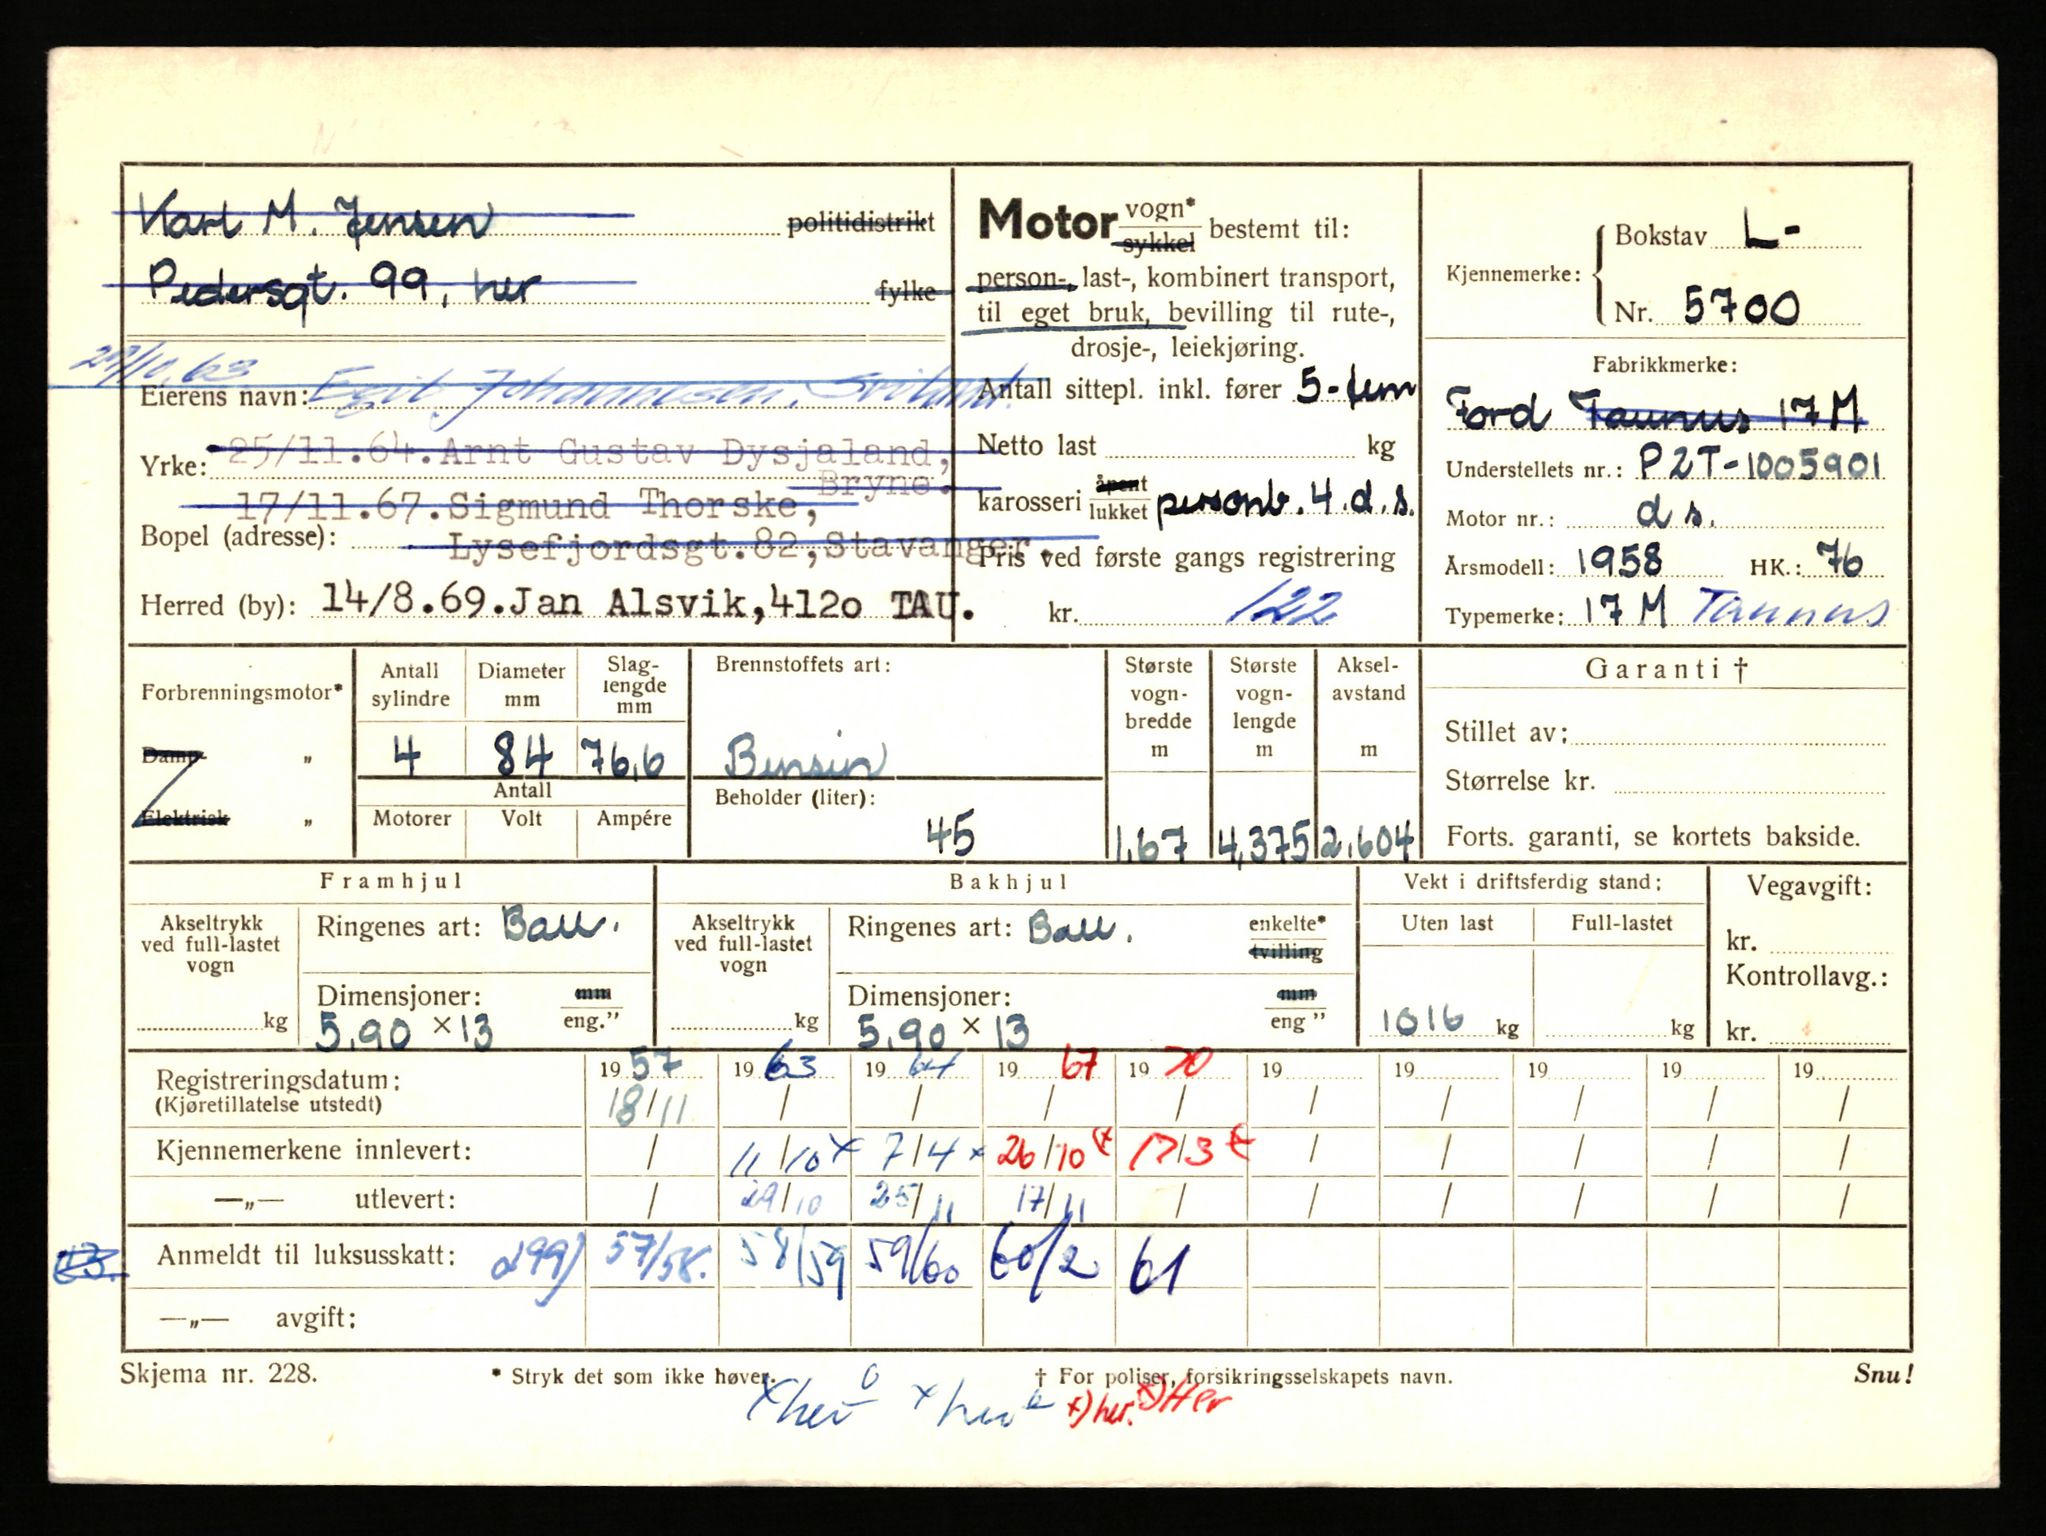 Karl M. Jensen politidistrikt
Pedersgt. 99, her fylke
29/10.63
Eierens navn: Egil Johannesen, Sviland.
Yrke: 25/11.64.Arnt Gustav Dysjaland,
Bryne.
17/11.67.Sigmund Thorske,
Bopel (adresse): Lysefjordsgt.82,Stavanger.
Herred (by): 14/8.69.Jan Alsvik,4120 TAU.
Motor vogn* sykkel bestemt til:
person-, last-, kombinert transport,
til eget bruk, bevilling til rute-,
drosje-, leiekjøring.
Antall sittepl. inkl. fører 5-fem
Netto last kg
karosseri åpent lukket personb. 4.d.s.
Pris ved første gangs registrering
kr. 122
Kjennemerke: Bokstav L-
Nr. 5700
Fabrikkmerke:
Ford Taunus 17M
Understellets nr.: P2T-1005901
Motor nr.: d s.
Årsmodell: 1958 HK.: 76
Typemerke: 17 M Taunus
Forbrenningsmotor*
Damp- „
Elektrisk „
Antall sylindre 4
Diameter mm 84
Slag-lengde mm 76,6
Antall
Motorer Volt Ampére
Brennstoffets art:
Bensin
Beholder (liter):
45
Største vogn-bredde m 1,67
Største vogn-lengde m 4,375
Aksel-avstand m 2,604
Garanti †
Stillet av:
Størrelse kr.
Forts. garanti, se kortets bakside.
Framhjul
Akseltrykk ved full-lastet vogn kg
Ringenes art: Ball.
Dimensjoner: mm eng.”
5,90 × 13
Bakhjul
Akseltrykk ved full-lastet vogn kg
Ringenes art: Ball. enkelte* tvilling
Dimensjoner: mm eng ”
5,90 × 13
Vekt i driftsferdig stand:
Uten last Full-lastet
1016 kg kg
Vegavgift:
kr.
Kontrollavg.:
kr.
Registreringsdatum: 1957 1963 1964 1967 1970 19 19 19 19 19
(Kjøretillatelse utstedt) 18/11 / / / / / / / / /
Kjennemerkene innlevert: / 11/10 x 7/4 x 26/10 x 17/3 x / / / / /
—„— utlevert: / 29/10 25/11 17/11 / / / / / /
Anmeldt til luksusskatt: 57/58. 58/59 59/60 60/2 61
—„— avgift:
Skjema nr. 228. * Stryk det som ikke høver. † For poliser, forsikringsselskapets navn. Snu!
x her x her x) her. x) Her